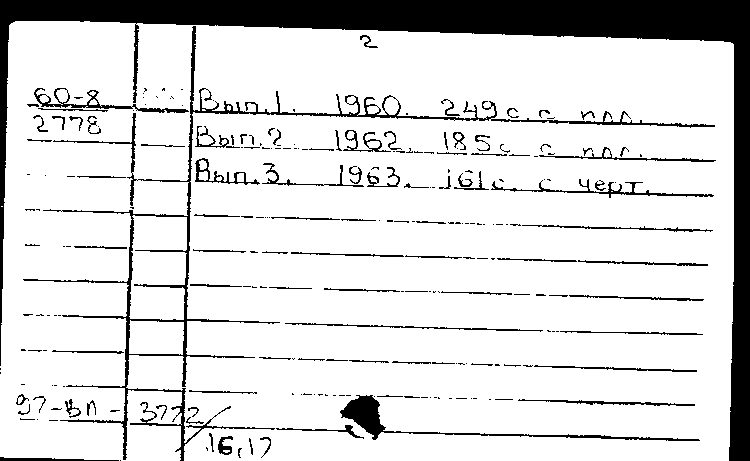 2
60-8 Вып.1. 1960. 249с. с илл.
2778 Вып.2 1962. 185с с илл.
Вып.3. 1963. 161с. с черт.
97-вп- 3772/16,17